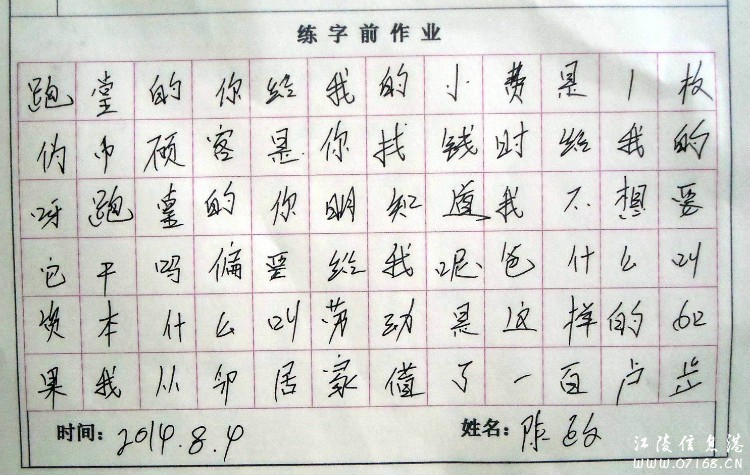 练字前作业
跑堂的你给我的小费是1枚
伪币顾客是你找钱时给我的
呀跑堂的你明知道我不想要
它干吗偏要给我呢爸什么叫
资本什么叫劳动是这样的如
果我从邻居家借了一百卢步
时间：2014.8.4 姓名：陈
江陵信息港
www.07168.CN